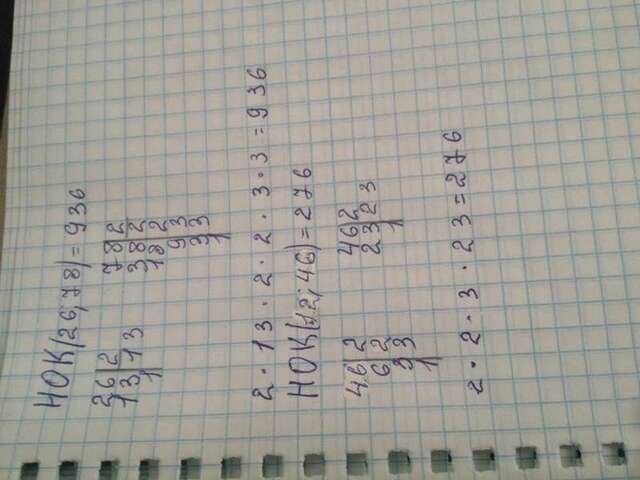 НОК(26;78)=936
26|2 78|2
13|13 38|2
1 18|2
9|3
3|3
1
2·13·2·2·3·3=936
НОК(12;46)=276
46|2 46|2
6|2 23|23
3|3 1
1
2·2·3·23=276